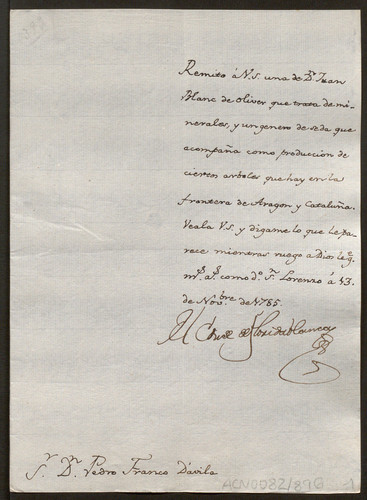 Remito á V.S. una de Dn. Juan
Blanc de oliver que trata de mi-
nerales, y un genero de seda que
acompaña como produccion de
ciertos arboles que hay en la
frontera de Aragon y Cataluña.
Veala V.S. y digame lo que le pa-
rece mientras ruego a Dios le g.
ms. as. como do. Sn. Lorenzo á 13.
de Novbre. de 1785.
El Conde de Floridablanca
Sr. Dn. Pedro Franco Dávila
ACN0082/896
1